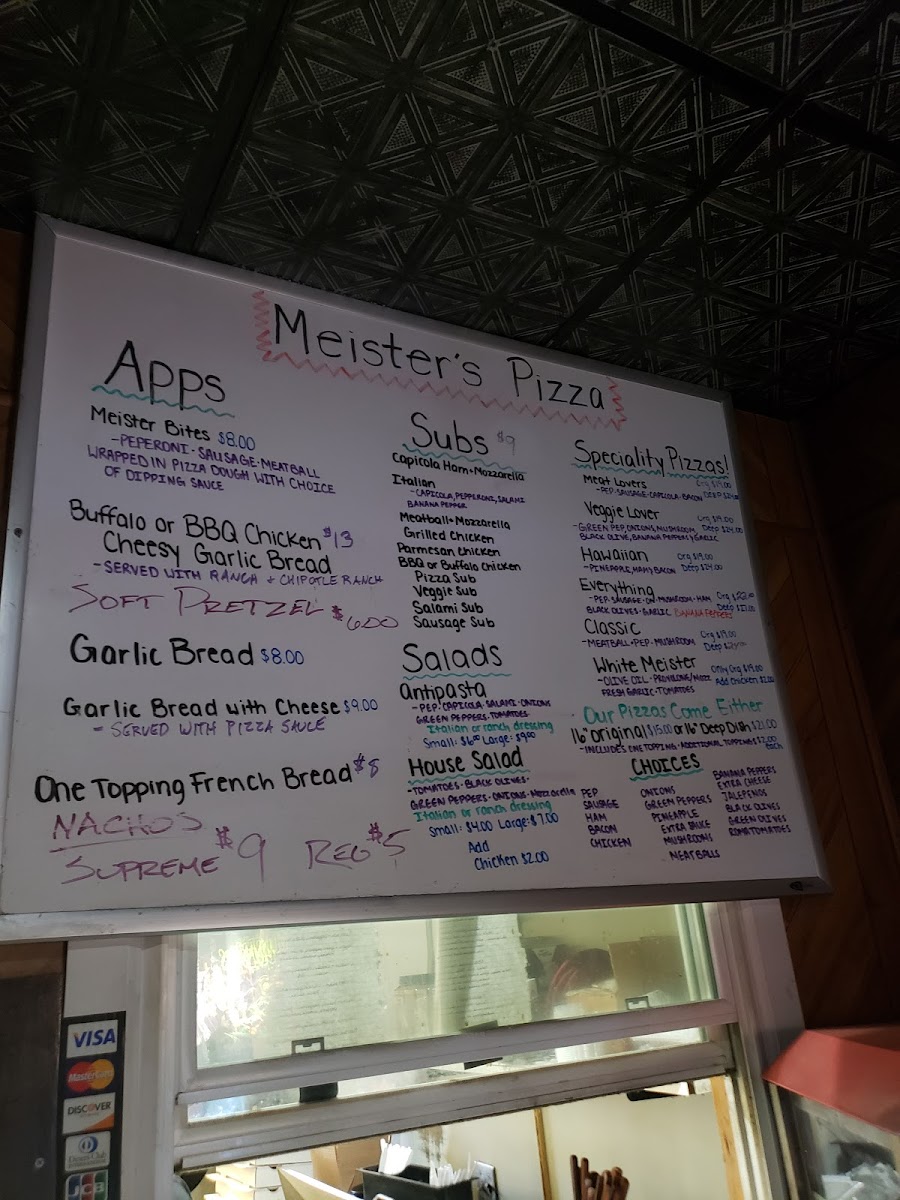 Meister's Pizza
Apps
Meister Bites $8.00
-PEPERONI·SAUSAGE·MEATBALL
WRAPPED IN PIZZA DOUGH WITH CHOICE
OF DIPPING SAUCE
Buffalo or BBQ Chicken $13
Cheesy Garlic Bread
-SERVED WITH RANCH + CHIPOTLE RANCH
SOFT PRETZEL $6.00
Garlic Bread $8.00
Garlic Bread with Cheese $9.00
- SERVED WITH PIZZA SAUCE
One Topping French Bread $8
NACHOS
SUPREME $9 REG $5
Subs $9
Capicola Ham+Mozzarella
Italian
-CAPICOLA, PEPPERONI, SALAMI
BANANA PEPPER
Meatball+Mozzarella
Grilled Chicken
Parmesan Chicken
BBQ or Buffalo Chicken
Pizza Sub
Veggie Sub
Salami Sub
Sausage Sub
Salads
Antipasta
-PEP·CAPICOLA·SALAMI·ONIONS
GREEN PEPPERS·TOMATOES
Italian or ranch dressing
Small: $6.00 Large: $9.00
House Salad
-TOMATOES·BLACK OLIVES·
GREEN PEPPERS·ONIONS·Mozzarella
Italian or ranch dressing
Small: $4.00 Large: $7.00
Add
Chicken $2.00
Speciality Pizzas!
Meat Lovers Org $19.00
-PEP·SAUSAGE·CAPICOLA·BACON
Veggie Lover Org $19.00
-GREEN PEP, ONIONS, MUSHROOM Deep $24.00
BLACK OLIVE, BANANA PEPPERS, GARLIC
Hawaiian Org $19.00
-PINEAPPLE, HAM, BACON Deep $24.00
Everything Org $22.00
-PEP·SAUSAGE·ON·MUSHROOM·HAM Deep $27.00
BLACK OLIVES·GARLIC BANANA PEPPERS
Classic Org $19.00
-MEATBALL·PEP·MUSHROOM Deep $24.00
White Meister Only Org $19.00
-OLIVE OIL·PROVOLONE/MOZZ Add Chicken $2.00
FRESH GARLIC·TOMATOES
Our Pizzas Come Either
16" original $15.00 or 16" Deep Dish $21.00
-INCLUDES ONE TOPPING·ADDITIONAL TOPPINGS $2.00 each
CHOICES
PEP
SAUSAGE
HAM
BACON
CHICKEN
ONIONS
GREEN PEPPERS
PINEAPPLE
EXTRA SAUCE
MUSHROOMS
MEATBALLS
BANANA PEPPERS
EXTRA CHEESE
JALEPENOS
BLACK OLIVES
GREEN OLIVES
ROMATOMATOES
VISA
MasterCard
DISCOVER
Diners Club
JCB